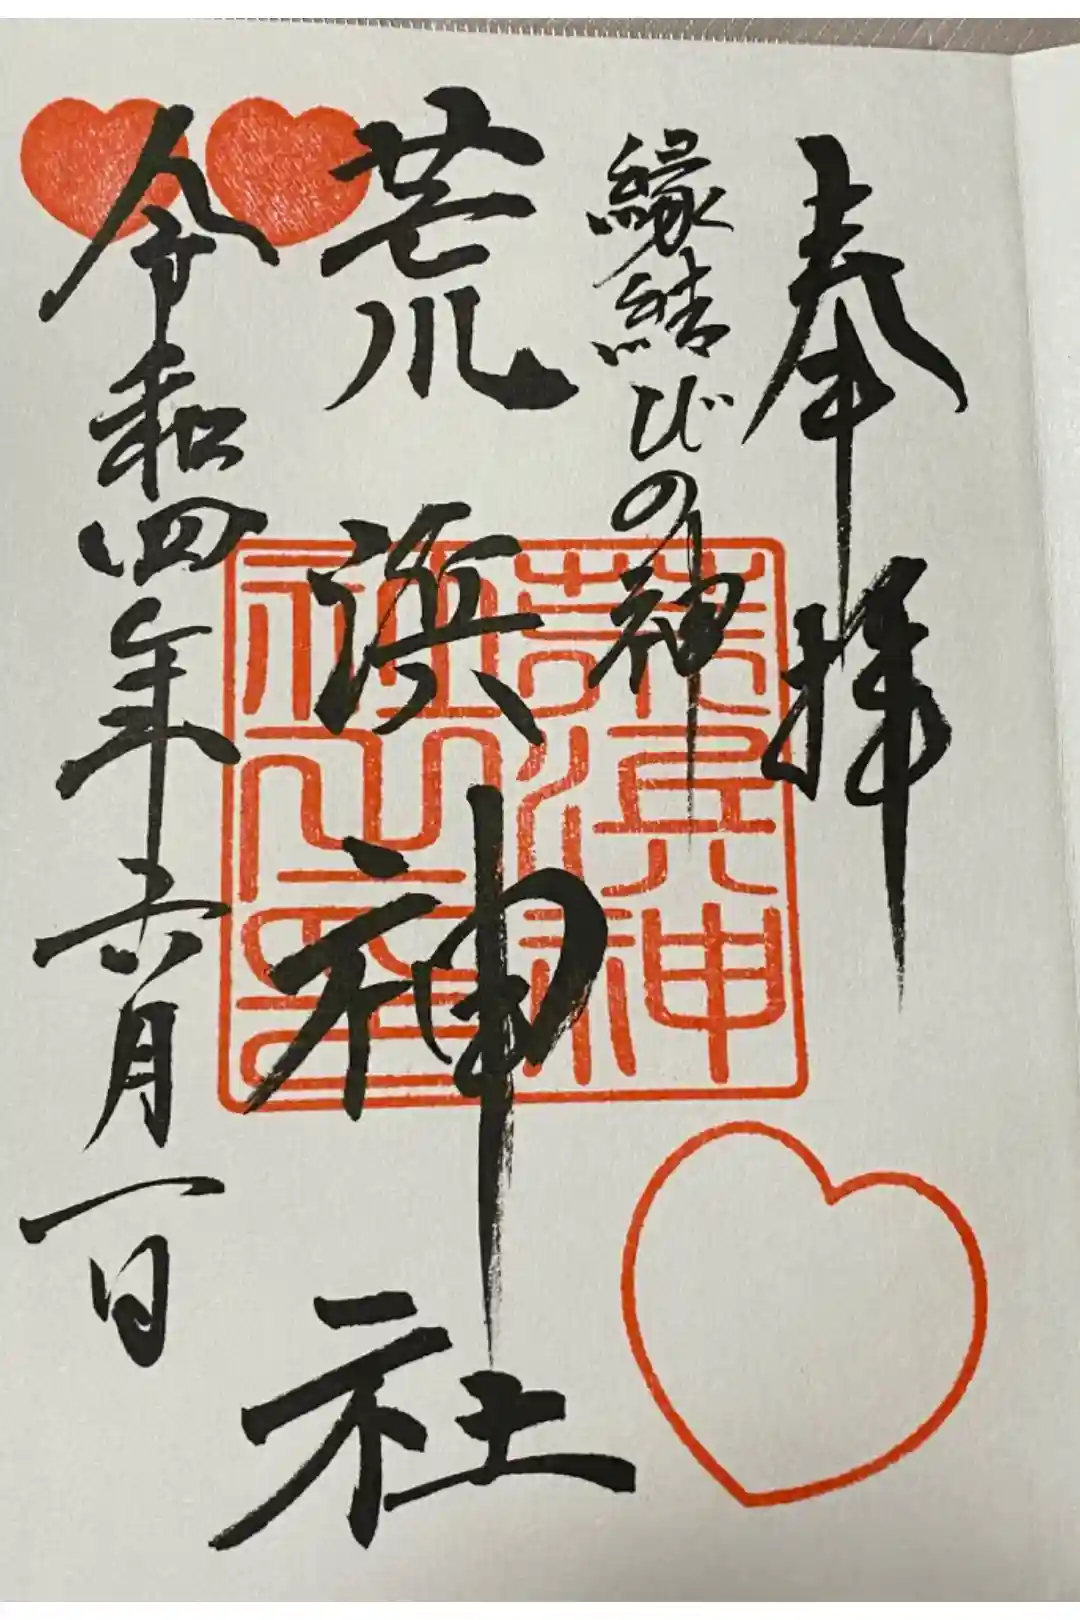 奉拝
縁結びの神
荒浜神社
令和四年六月一日
荒浜神
社之印